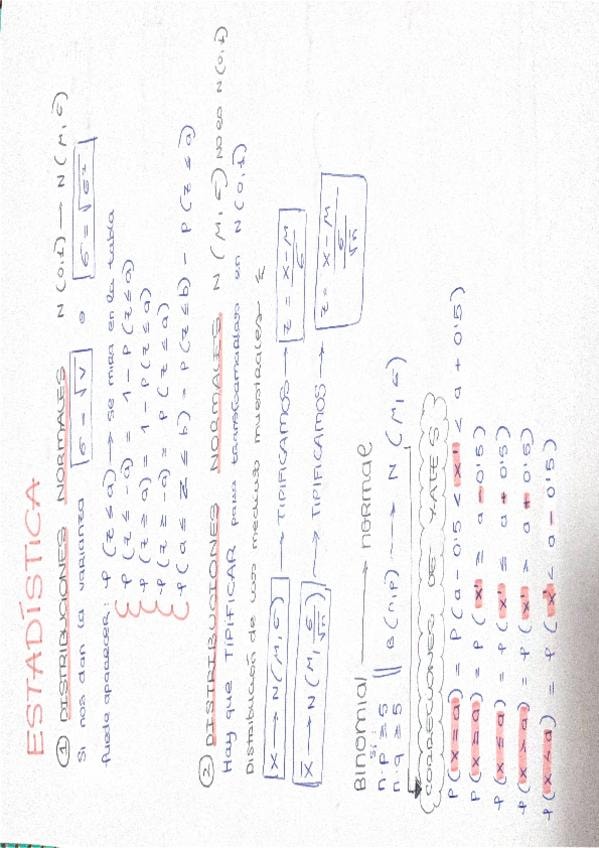 ESTADÍSTICA
① DISTRIBUCIONES NORMALES N(0,1) → N(M, σ)
Si nos dan la varianza σ = √V o σ = √σ²
Puede aparecer: P(z ≤ a) → se mira en la tabla
P(z ≤ -a) = 1 - P(z ≤ a)
P(z ≥ a) = 1 - P(z ≤ a)
P(z ≥ -a) = P(z ≤ a)
P(a ≤ z ≤ b) = P(z ≤ b) - P(z ≤ a)
② DISTRIBUCIONES NORMALES N(M, σ) no es N(0,1)
Hay que TIPIFICAR para transformarlas en N(0,1)
Distribución de las medias muestrales x̄
X → N(M, σ) → TIPIFICAMOS → z = X - M / σ
X̄ → N(M, σ/√n) → TIPIFICAMOS → z = X - M / σ/√n
Binomial → normal
si:
n·p ≥ 5
n·q ≥ 5 || B(n,p) → N(M, σ)
CORRECCIONES DE YATES
P(x = a) = P(a - 0'5 < x' < a + 0'5)
P(x ≥ a) = P(x' ≥ a - 0'5)
P(x ≤ a) = P(x' ≤ a + 0'5)
P(x > a) = P(x' > a + 0'5)
P(x < a) = P(x' < a - 0'5)